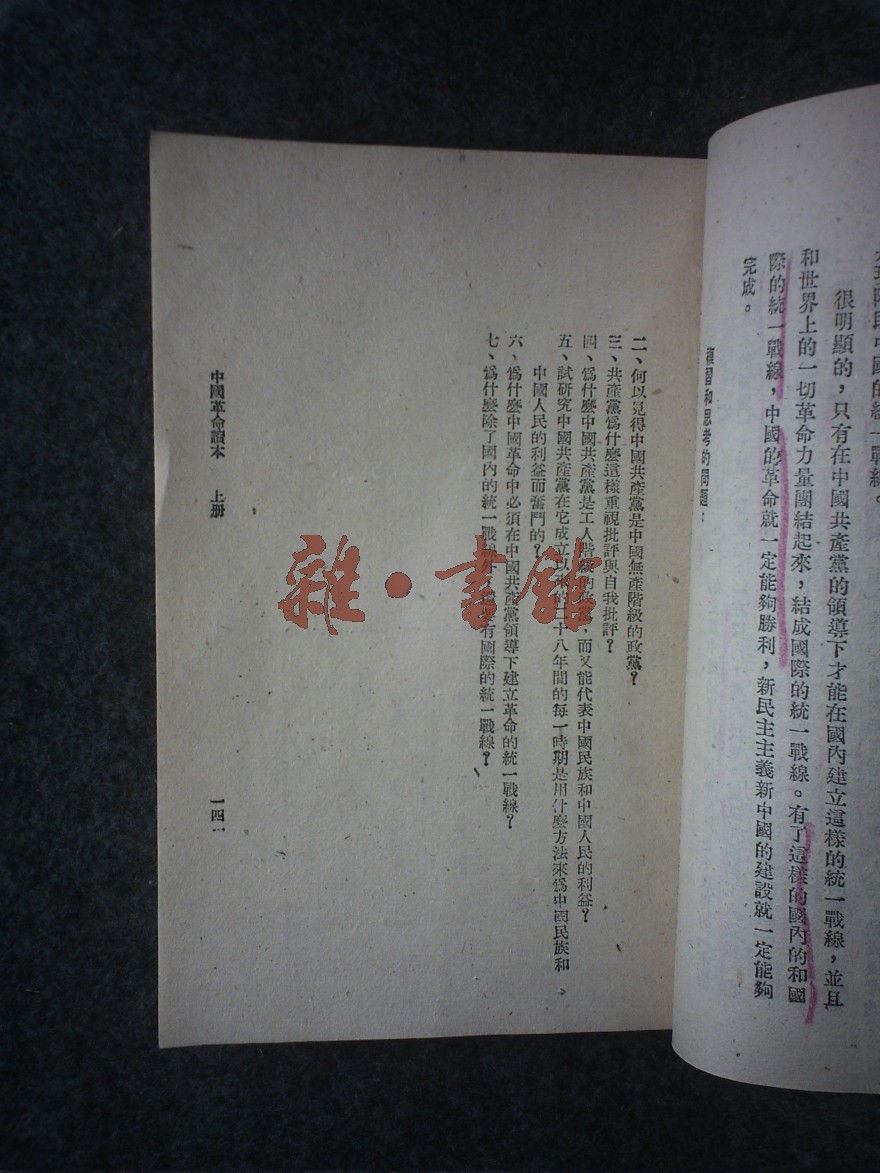 很明顯的，只有在中國共產黨的領導下才能在國內建立這樣的統一戰線，並且
和世界上的一切革命力量團結起來，結成國際的統一戰線。有了這樣的國內的和國
際的統一戰線，中國的革命就一定能夠勝利，新民主主義新中國的建設就一定能夠
完成。
複習和思考的問題：
二、何以見得中國共產黨是中國無產階級的政黨？
三、共產黨爲什麼這樣重視批評與自我批評？
四、爲什麼中國共產黨是工人階級的政黨，而又能代表中國民族和中國人民的利益？
五、試研究中國共產黨在它成立以來的二十八年間的每一時期是用什麼方法來爲中國民族和
中國人民的利益而奮鬥的？
六、爲什麼中國革命中必須在中國共產黨領導下建立革命的統一戰線？
七、爲什麼除了國內的統一戰線外，還要有國際的統一戰線？
中國革命讀本　上册
一四一
雜·書館